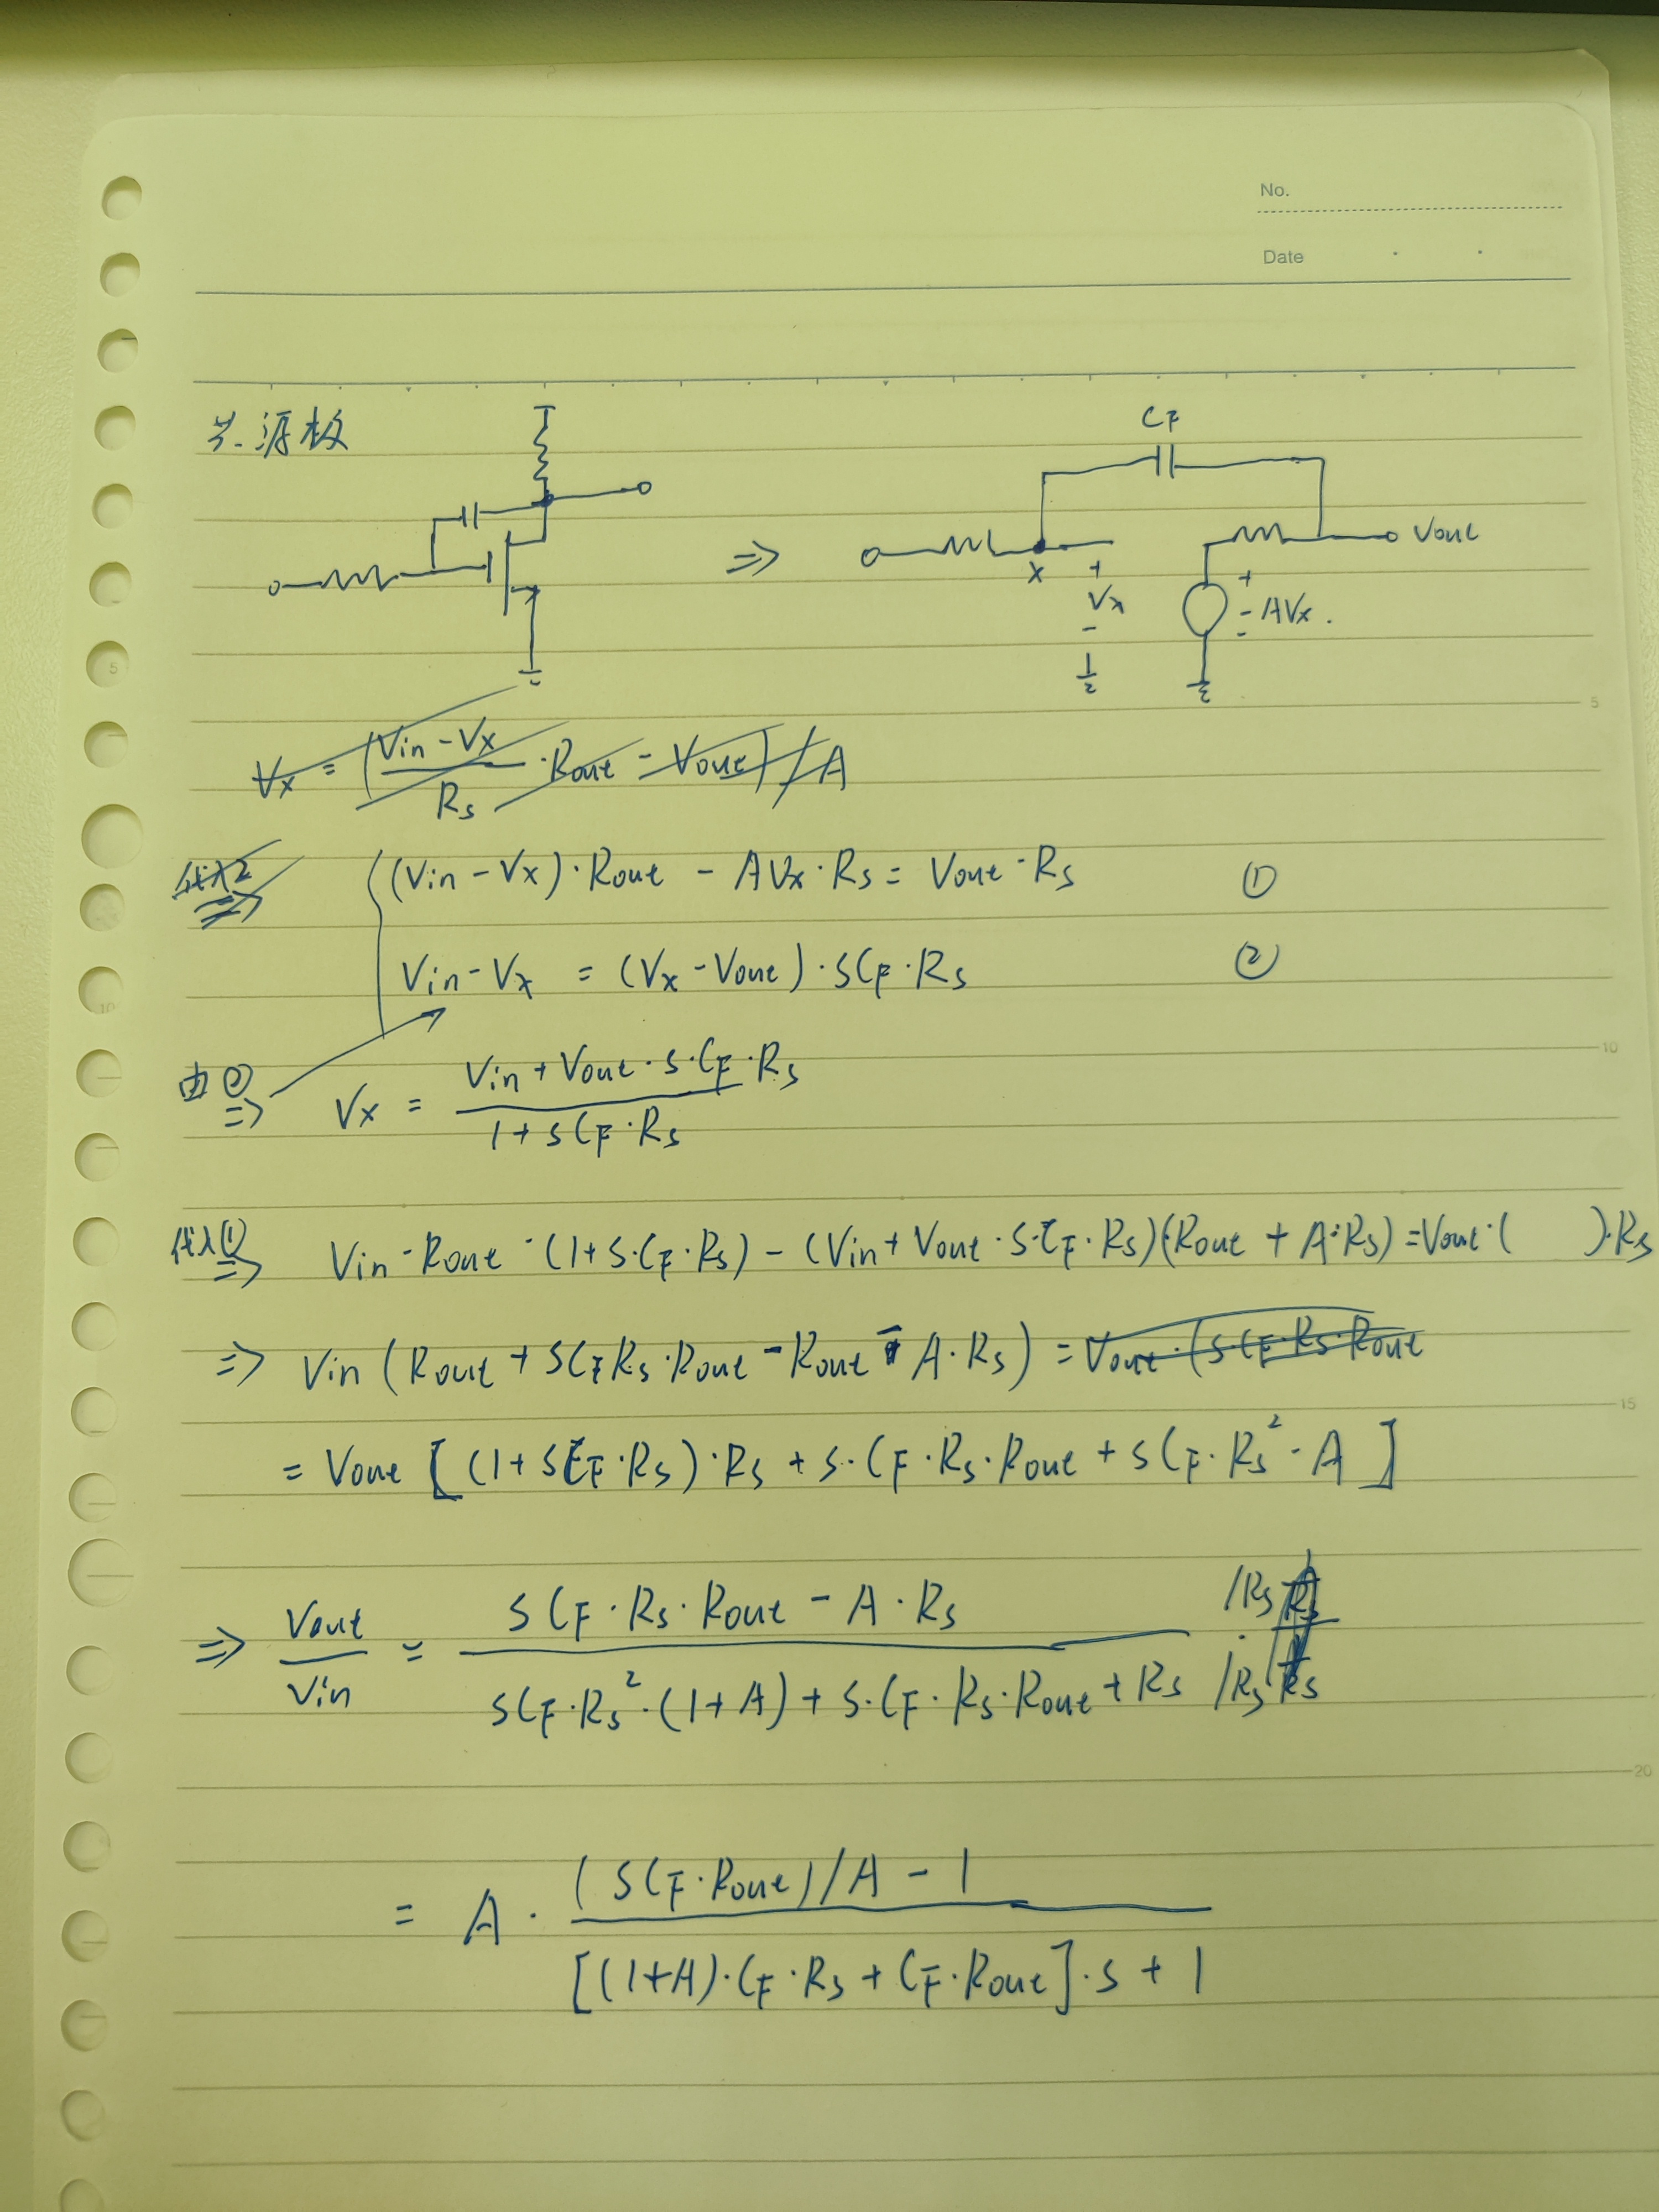 No.
Date
共源极
CF
X
+
Vx
-
+
-AVx.
-
Vout
5
Vx = (Vin-Vx / Rs · Rout - Vout) / A
代入2 => (Vin - Vx)·Rout - AVx·Rs = Vout·Rs ①
Vin-Vx = (Vx-Vout)·SCF·Rs ②
由② => Vx = Vin + Vout·S·CF·Rs / 1+SCF·Rs
10
代入① => Vin·Rout·(1+S·CF·Rs) - (Vin+Vout·S·CF·Rs)(Rout + A·Rs) = Vout·( )·Rs
=> Vin (Rout + SCFRs·Rout - Rout - A·Rs) = Vout·(SCF·Rs·Rout
15
= Vout [(1+SCF·Rs)·Rs + S·CF·Rs·Rout + SCF·Rs²·A]
=> Vout / Vin = SCF·Rs·Rout - A·Rs / SCF·Rs²·(1+A) + S·CF·Rs·Rout + Rs /Rs /Rs
20
= A · (SCF·Rout)/A - 1 / [(1+A)·CF·Rs + CF·Rout]·S + 1